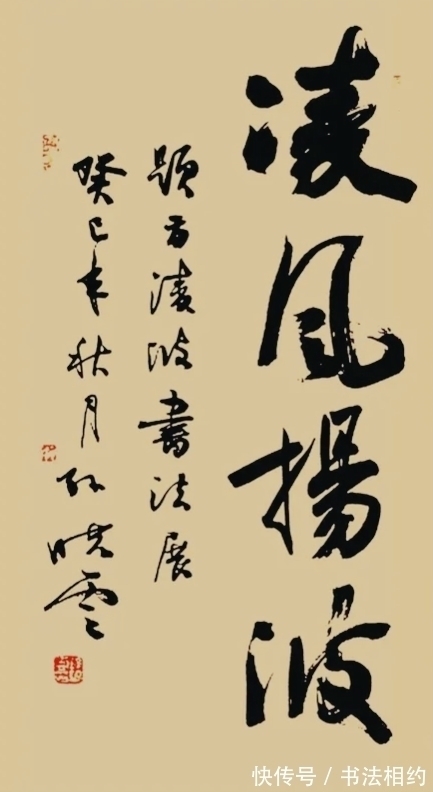 凌风揚波
题方凌波書法展
癸巳年秋月孙晓雲
快传号 / 书法相约